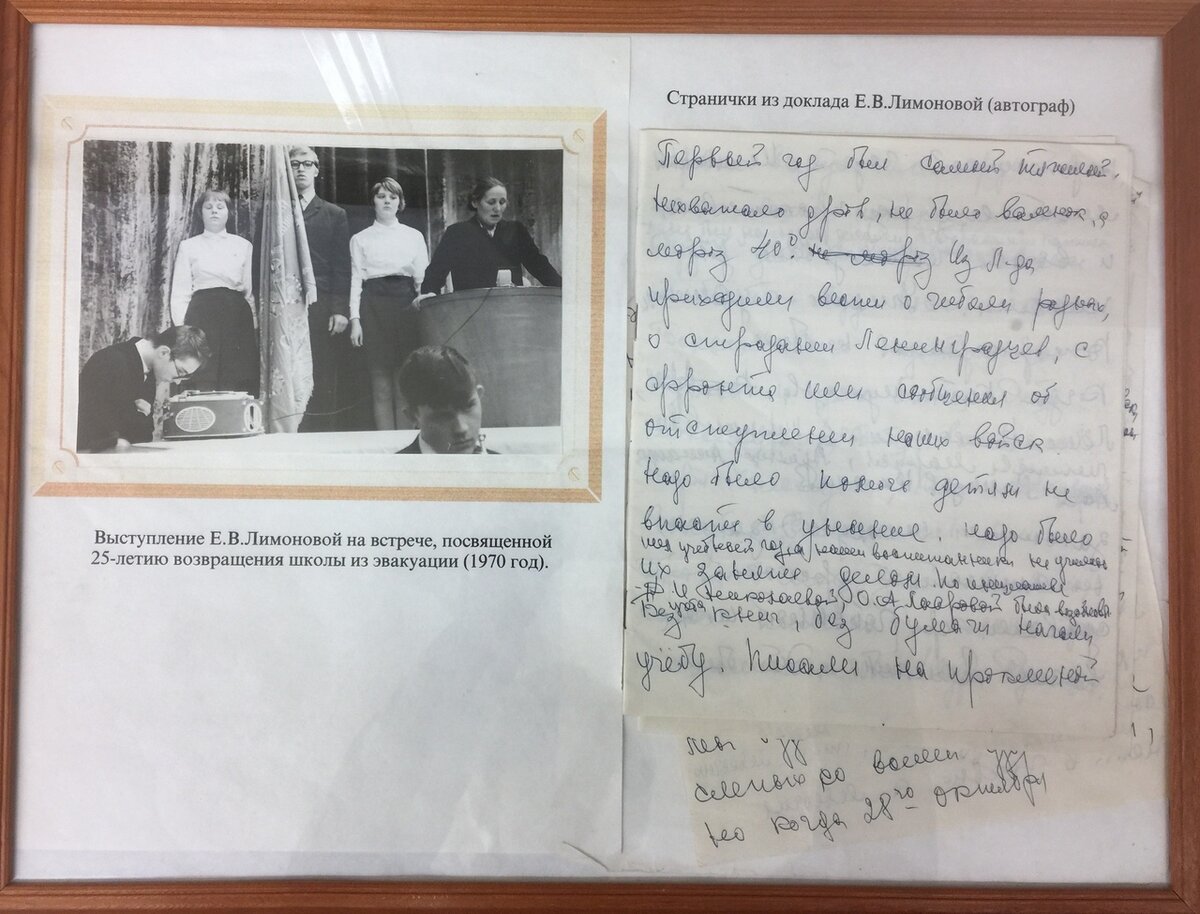 Выступление Е.В.Лимоновой на встрече, посвященной
25-летию возвращения школы из эвакуации (1970 год).
Странички из доклада Е.В.Лимоновой (автограф)
Первый год был самый тяжелый.
Нехватало дров, не было валенок, а
мороз 40°. и мороз Из Л-да
приходили вести о гибели родных,
о страдании Ленинградцев, с
фронта шли сообщения об
отступлении наших войск.
Надо было помочь детям не
впасть в уныние. надо было
учебный год наши воспитанники не учились
их занять делом. По инициативе
Николаевой, О.А. Лавровой была
Без книг, без бумаги начали
учёбу. Писали на
слепых со всеми
но когда 28го октября